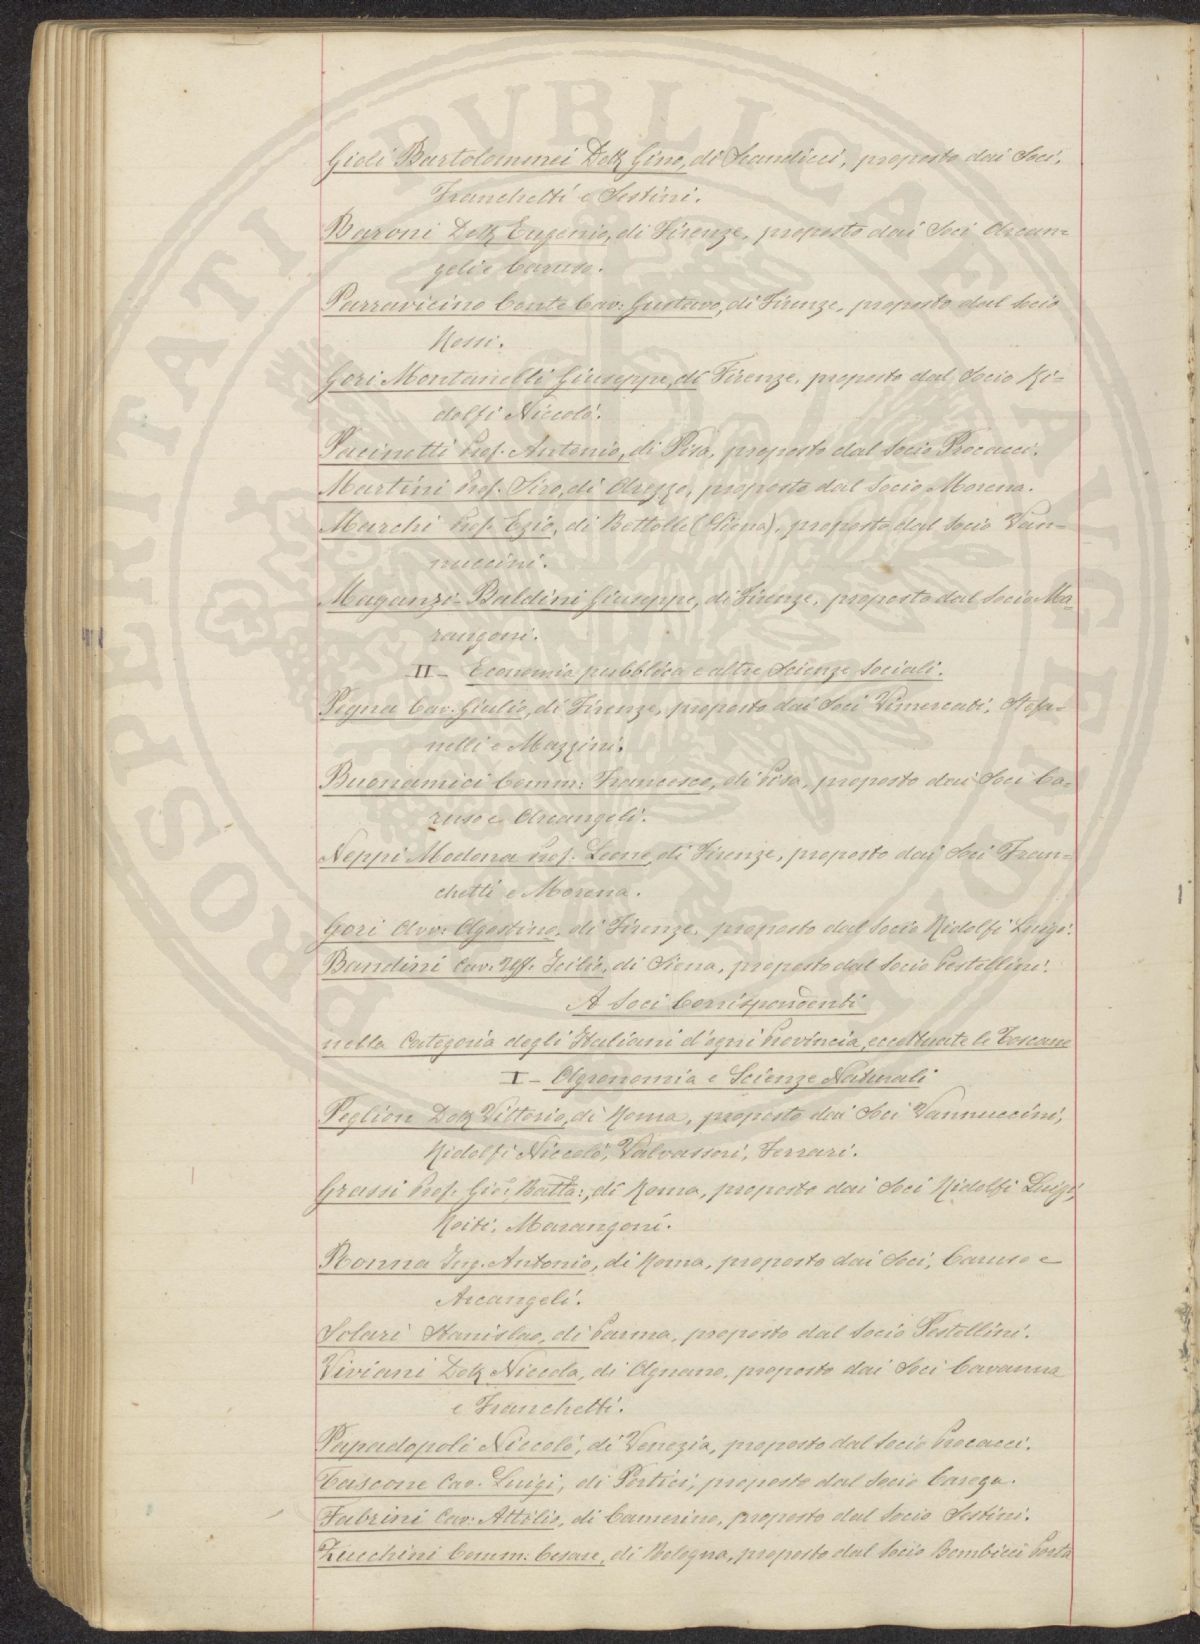 Gioli Bartolommei Dott. Gino, di Scandicci, proposto dai Soci,
Franchetti e Sestini.
Baroni Dott. Eugenio, di Firenze, proposto dai Soci Arcan=
geli e Caruso.
Parravicino Conte Cav: Gustavo, di Firenze, proposto dal Socio
Rossi.
Gori Montanelli Giuseppe, di Firenze, proposto dal Socio Ri=
dolfi Niccolò.
Pacinotti Prof. Antonio, di Pisa, proposto dal Socio Procacci.
Martini Prof. Siro, di Arezzo, proposto dal Socio Morena.
Marchi Prof. Ezio, di Bettolle (Siena), proposto dal Socio Van=
nuccini.
Maganzi-Baldini Giuseppe, di Firenze, proposto dal Socio Ma=
rangoni.
II - Economia pubblica e altre Scienze Sociali.
Pegna Cav. Giulio, di Firenze, proposto dai Soci Vimercati, Stefa=
nelli e Mazzini.
Buonamici Comm: Francesco, di Pisa, proposto dai Soci Ca=
ruso e Arcangeli.
Neppi Modona Prof. Leone, di Firenze, proposto dai Soci Fran=
chetti e Morena.
Gori Avv: Agostino, di Firenze, proposto dal Socio Ridolfi Luigi.
Bandini Cav. Uff. Icilio, di Siena, proposto dal Socio Pestellini.
A Soci Corrispondenti
nella Categoria degli Italiani d'ogni Provincia, eccettuate le Toscane
I - Agronomia e Scienze Naturali
Peglion Dott. Vittorio, di Roma, proposto dai Soci Vannuccini,
Ridolfi Niccolò, Valvassori, Ferrari.
Grassi Prof. Gio: Batta:, di Roma, proposto dai Soci Ridolfi Luigi,
Roiti, Marangoni.
Ronna Ing. Antonio, di Roma, proposto dai Soci, Caruso e
Arcangeli.
Solari Stanislao, di Parma, proposto dal Socio Pestellini.
Viviani Dott. Niccola, di Agnano, proposto dai Soci Cavanna
e Franchetti.
Papadopoli Niccolò, di Venezia, proposto dal Socio Procacci.
Cascone Cav. Luigi, di Portici, proposto dal Socio Carega.
Fabrini Cav: Attilio, di Camerino, proposto dal Socio Sestini.
Zucchini Comm: Cesare, di Bologna, proposto dal Socio Bombicci Porta
PROSPERITATI PVBLICAE AVGENDAE